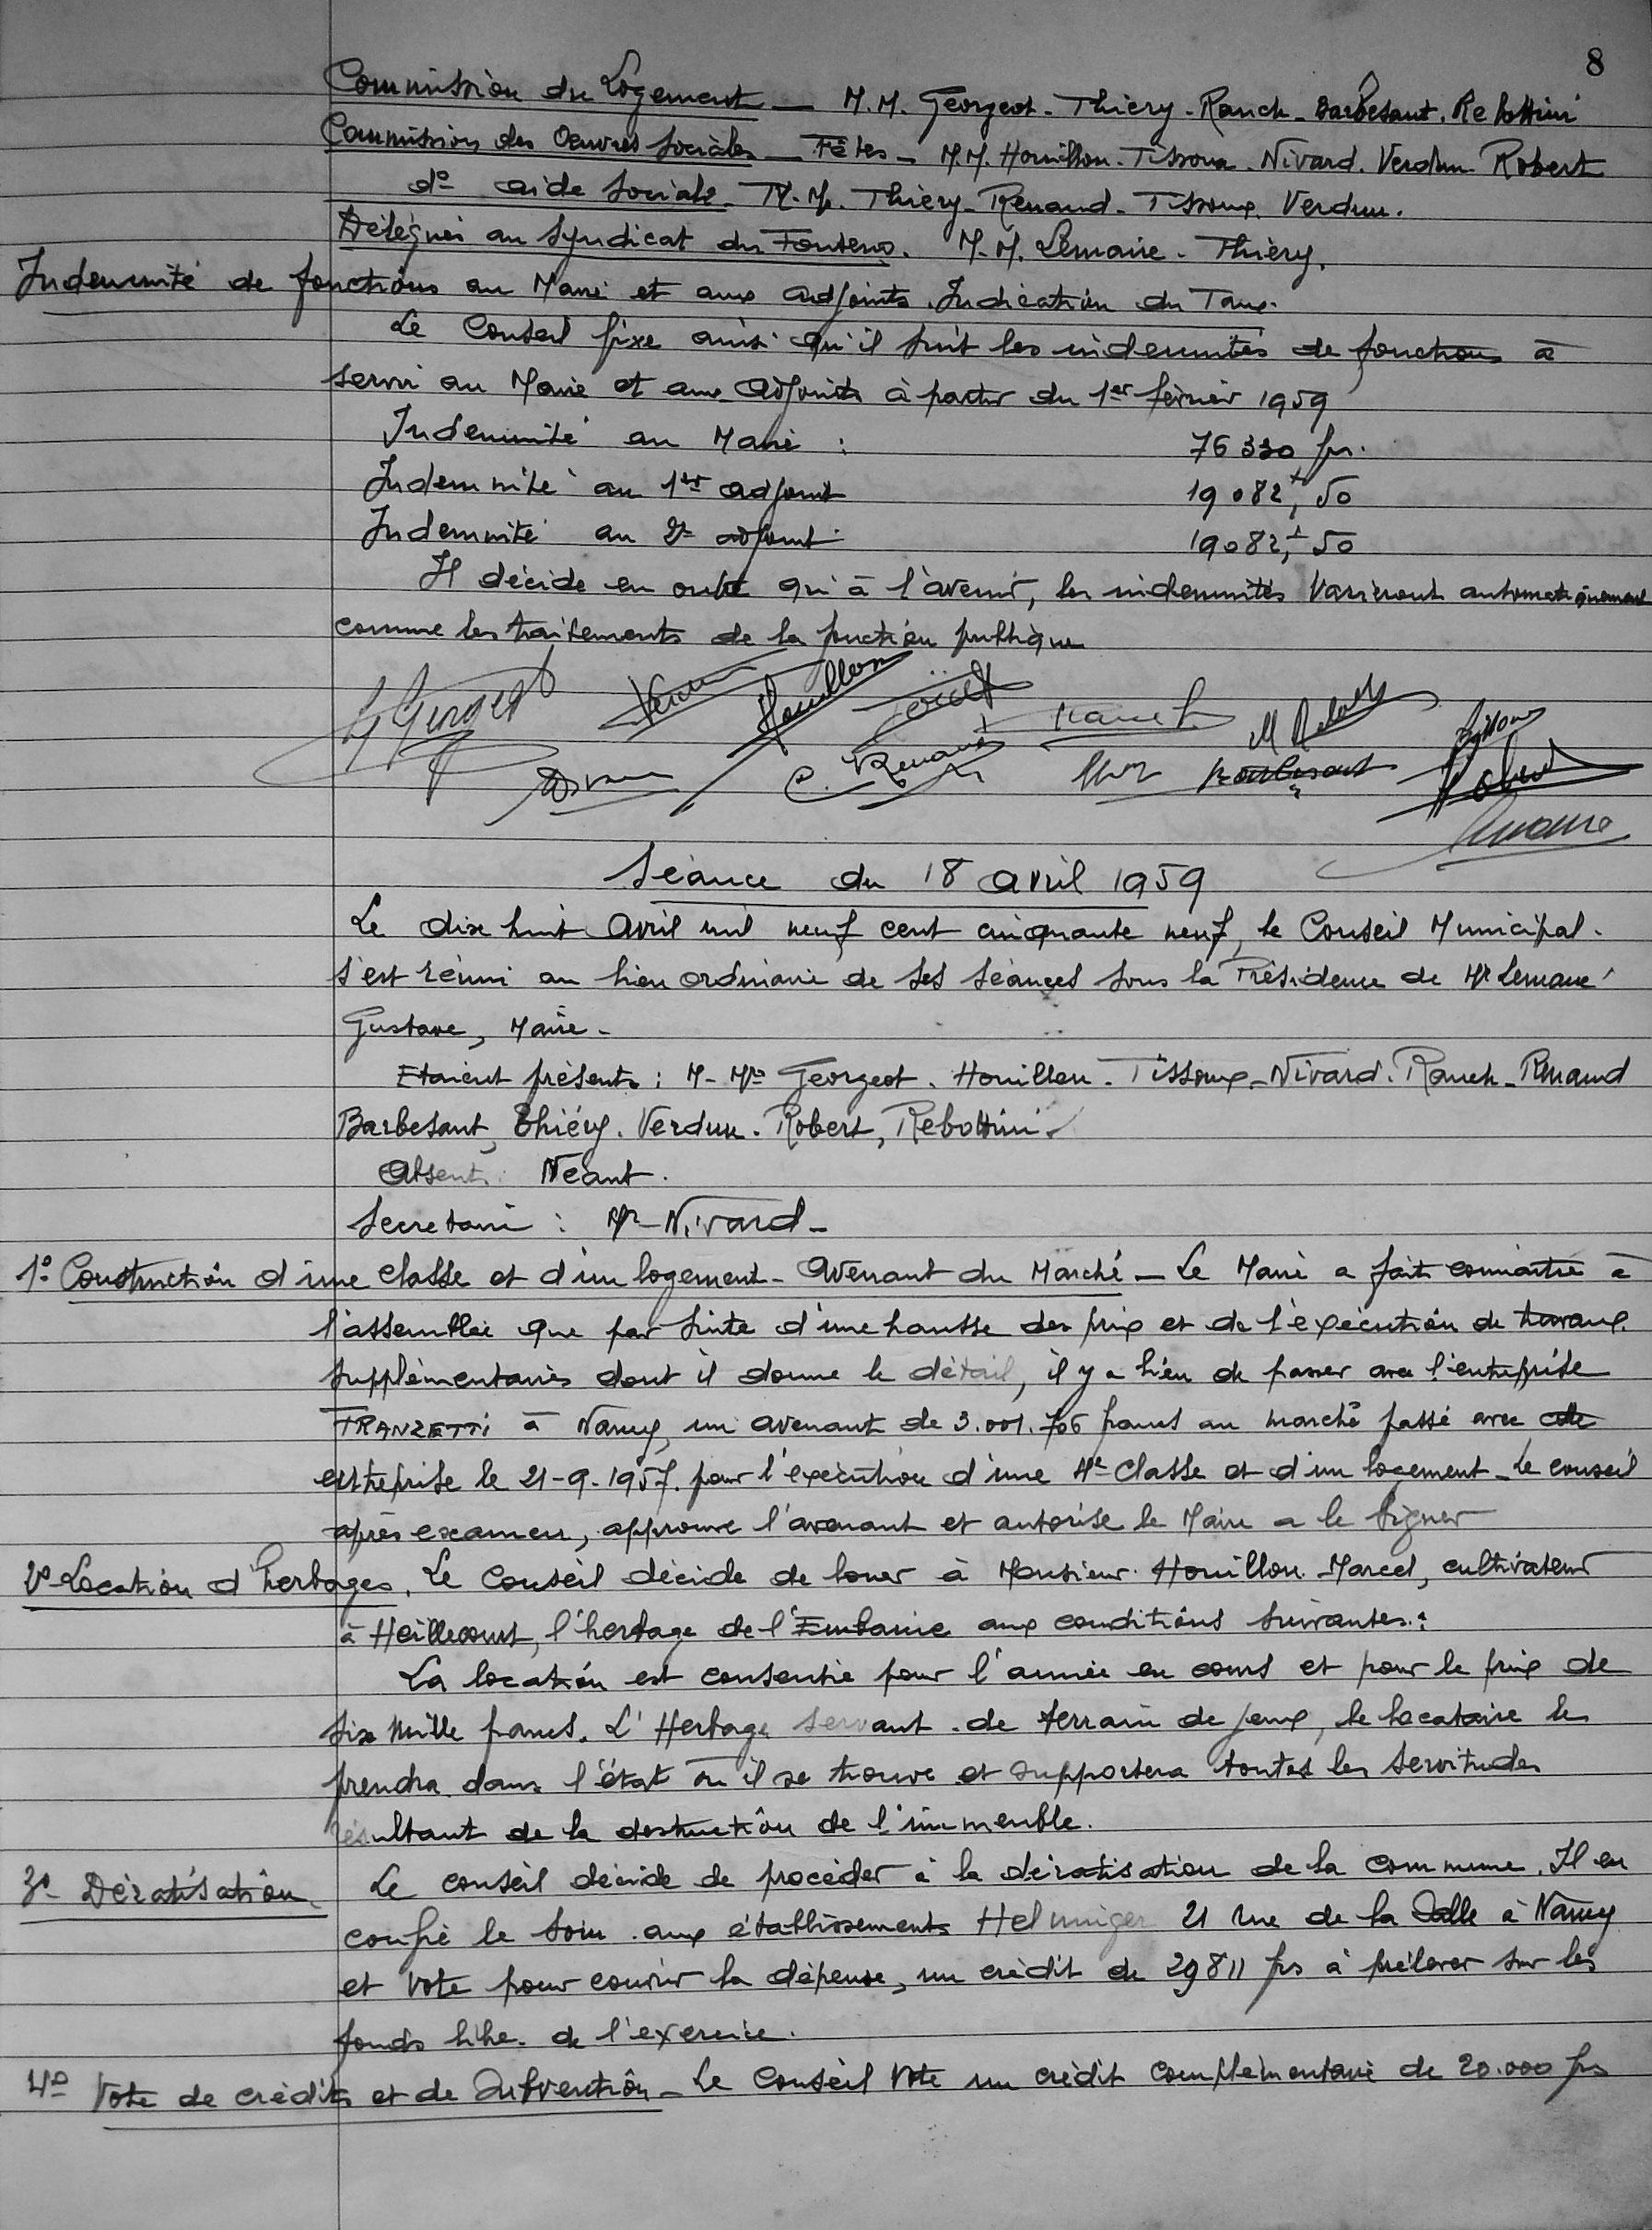 8
Commission du Logement - M.M. Georgeot - Thiéry - Ranch - Barbesant. Rebottini
Commission des Oeuvres Sociales - Fêtes - M.M. Houillon - Tissoux - Nivard. Verdun - Robert
do aide sociale - M.M. Thiéry - Renaud - Tissoux. Verdun.
Délégués au Syndicat du Fonteno. M.M. Lemaire - Thiéry.
Indemnité de fonctions au Maire et aux adjoints. Indication du Taux.
Le Conseil fixe ainsi qu'il suit les indemnités de fonctions à
servir au Maire et aux adjoints à partir du 1er février 1959
Indemnité au Maire : 76 330 frs.
Indemnité au 1er adjoint 19 082f, 50
Indemnité au 2e adjoint 19082,f 50
Il décide en outre qu'à l'avenir, les indemnités varieront automatiquement
comme les traitements de la fonction publique
G Georgeot Houillon Ranch
C. Renaud Barbesant Robert
Séance du 18 avril 1959
Le dix huit Avril mil neuf cent cinquante neuf, le Conseil Municipal.
s'est réuni au lieu ordinaire de ses séances sous la Présidence de Mr Lemaire
Gustave, Maire -
Etaient présents : M. Mrs Georgeot. Houillon - Tissoux - Nivard. Ranch - Renaud
Barbesant, Thiéry. Verdun. Robert, Rebottini.
Absents : Néant.
Secrétaire : Mr Nivard -
1o Construction d'une classe et d'un logement - Avenant du Marché - Le Maire a fait connaître à
l'assemblée que par suite d'une hausse des prix et de l'exécution de travaux
supplémentaires dont il donne le détail, il y a lieu de passer avec l'entreprise
TRANZETTI à Nancy, un avenant de 3.001.706 francs au marché passé avec cette
entreprise le 21-9-1957. pour l'exécution d'une 4e classe et d'un logement - Le conseil
après examen, approuve l'avenant et autorise le Maire a le signer
2o Location d'herbages. Le Conseil décide de louer à Monsieur Houillon Marcel, cultivateur
à Heillecourt, l'herbage de l'Embanie aux conditions suivantes :
La location est consentie pour l'année en cours et pour le prix de
six mille francs. L'Herbage servant de terrain de jeux, le locataire le
prendra dans l'état où il se trouve et supportera toutes les servitudes
résultant de la destruction de l'immeuble.
3o Dératisation Le conseil décide de procéder à la dératisation de la commune. Il en
confie le soin aux établissements Helminger 21 rue de la Salle à Nancy
et vote pour couvrir la dépense, un crédit de 29811 frs à prélever sur les
fonds libe. de l'exercice.
4o Vote de crédits et de subvention - Le Conseil vote un crédit complémentaire de 20.000 frs